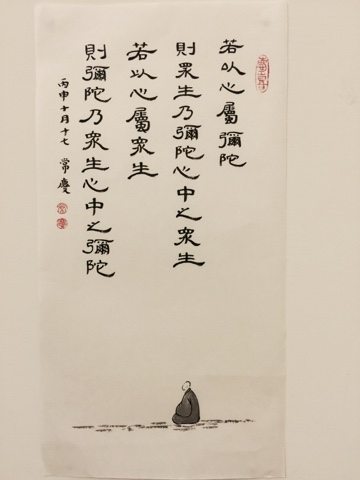 若以心屬彌陀
則眾生乃彌陀心中之眾生
若以心屬眾生
則彌陀乃眾生心中之彌陀
丙申十月十七 常慶